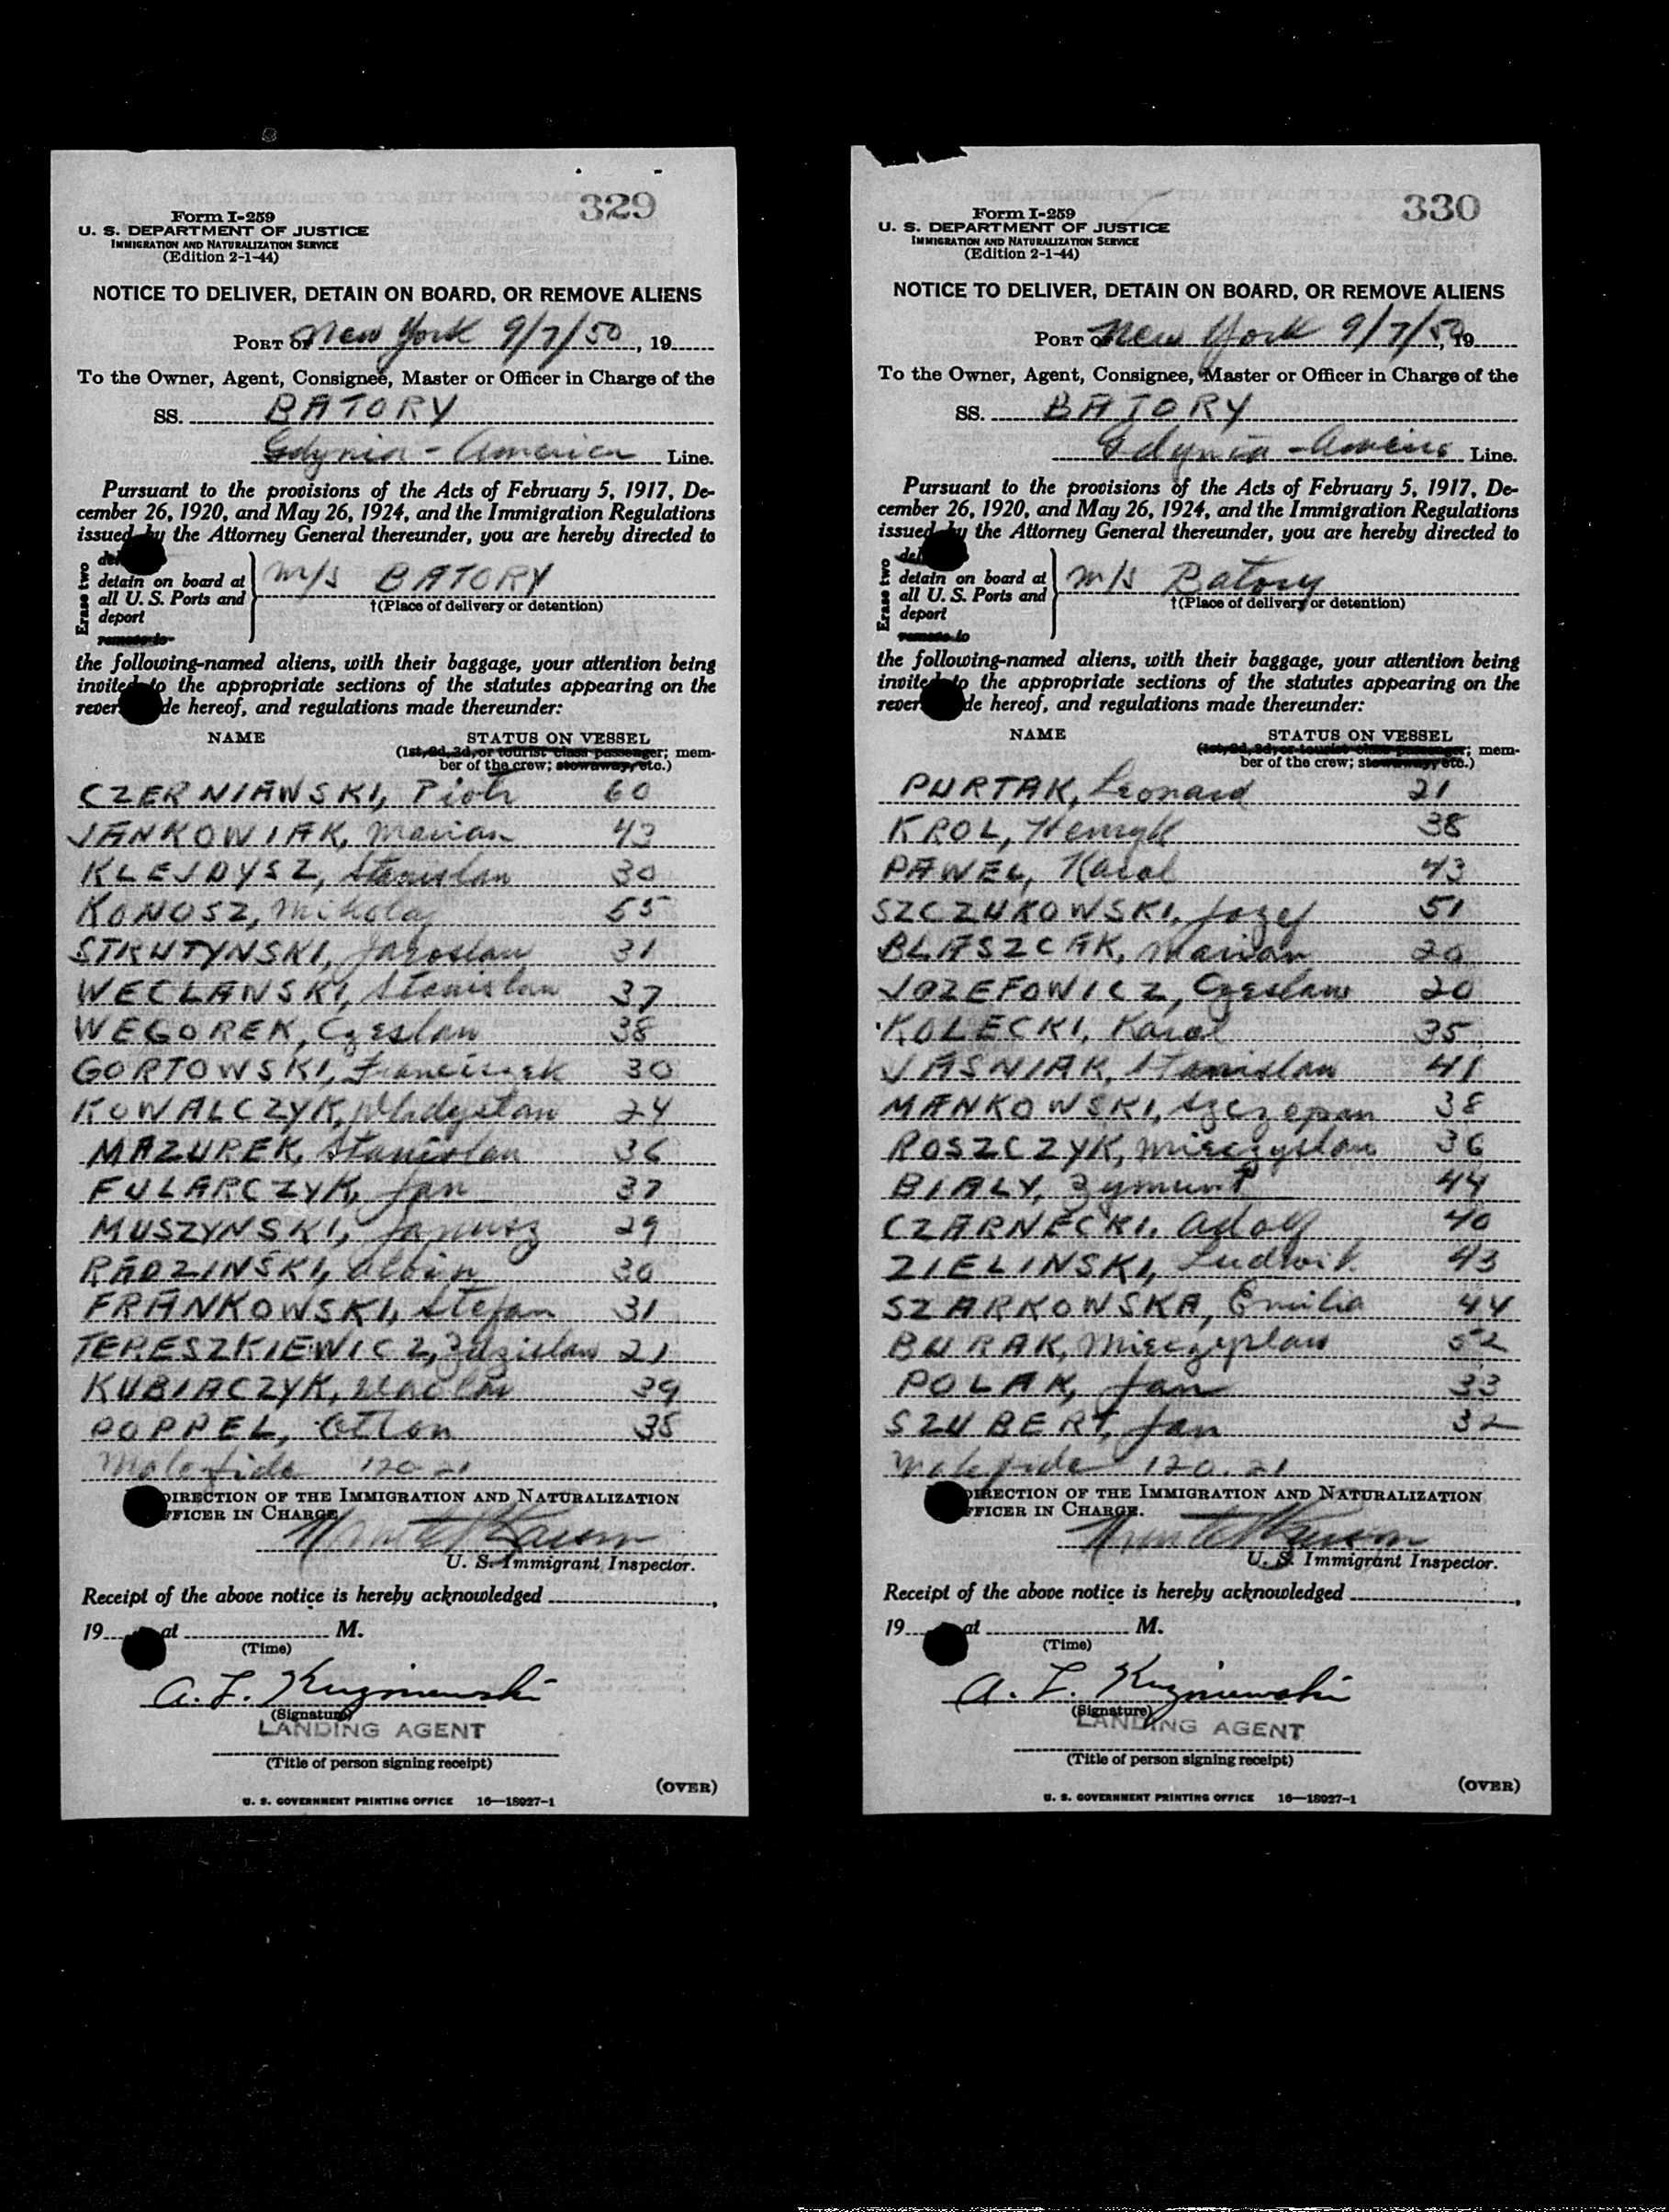 329
Form I-259
U. S. DEPARTMENT OF JUSTICE
IMMIGRATION AND NATURALIZATION SERVICE
(Edition 2-1-44)
NOTICE TO DELIVER, DETAIN ON BOARD, OR REMOVE ALIENS
PORT OF New York 9/7/50, 19
To the Owner, Agent, Consignee, Master or Officer in Charge of the
SS. BATORY
Gdynia - America Line.
Pursuant to the provisions of the Acts of February 5, 1917, De-
cember 26, 1920, and May 26, 1924, and the Immigration Regulations
issued by the Attorney General thereunder, you are hereby directed to
Erase two
detain on board at
all U. S. Ports and
deport
remove to
m/s BATORY
†(Place of delivery or detention)
the following-named aliens, with their baggage, your attention being
invited to the appropriate sections of the statutes appearing on the
reverse side hereof, and regulations made thereunder:
NAME STATUS ON VESSEL
(1st, 2d, 3d, or tourist class passenger; mem-
ber of the crew; stowaway, etc.)
CZERNIAWSKI, Piotr 60
JANKOWIAK, Marian 43
KLEJDYSZ, Stanislaw 30
KONOSZ, Mikolaj 55
STRUTYNSKI, Jaroslaw 31
WECLANSKI, Stanislaw 37
WEGOREK, Czeslaw 38
GORTOWSKI, Franciszek 30
KOWALCZYK, Wladyslaw 24
MAZUREK, Stanislaw 36
FULARCZYK, Jan 37
MUSZYNSKI, Janusz 29
RADZINSKI, Albin 30
FRANKOWSKI, Stefan 31
TERESZKIEWICZ, Zdzislaw 21
KUBIACZYK, Waclaw 39
POPPEL, Otton 35
Malafide 120.21
DIRECTION OF THE IMMIGRATION AND NATURALIZATION
OFFICER IN CHARGE.
U. S. Immigrant Inspector.
Receipt of the above notice is hereby acknowledged ,
19 at M.
(Time)
A. L. Kuzniewski
(Signature)
LANDING AGENT
(Title of person signing receipt)
(OVER)
U. S. GOVERNMENT PRINTING OFFICE 16—18927-1
330
Form I-259
U. S. DEPARTMENT OF JUSTICE
IMMIGRATION AND NATURALIZATION SERVICE
(Edition 2-1-44)
NOTICE TO DELIVER, DETAIN ON BOARD, OR REMOVE ALIENS
PORT OF New York 9/7/50, 19
To the Owner, Agent, Consignee, Master or Officer in Charge of the
SS. BATORY
Gdynia - America Line.
Pursuant to the provisions of the Acts of February 5, 1917, De-
cember 26, 1920, and May 26, 1924, and the Immigration Regulations
issued by the Attorney General thereunder, you are hereby directed to
Erase two
detain on board at
all U. S. Ports and
deport
remove to
m/s Batory
†(Place of delivery or detention)
the following-named aliens, with their baggage, your attention being
invited to the appropriate sections of the statutes appearing on the
reverse side hereof, and regulations made thereunder:
NAME STATUS ON VESSEL
(1st, 2d, 3d, or tourist class passenger; mem-
ber of the crew; stowaway, etc.)
PURTAK, Leonard 21
KROL, Henryk 38
PAWEL, Karol 43
SZCZUKOWSKI, Jozef 51
BLASZCAK, Marian 20
JOZEFOWICZ, Czeslaw 20
KOLECKI, Karol 35
JASNIAK, Stanislaw 41
MANKOWSKI, Szczepan 38
ROSZCZYK, Mieczyslaw 36
BIALY, Zymunt 44
CZARNECKI, Adolf 40
ZIELINSKI, Ludwik 43
SZARKOWSKA, Emilia 44
BURAK, Mieczyslaw 52
POLAK, Jan 33
SZUBERT, Jan 32
Malafide 120.21
DIRECTION OF THE IMMIGRATION AND NATURALIZATION
OFFICER IN CHARGE.
U. S. Immigrant Inspector.
Receipt of the above notice is hereby acknowledged ,
19 at M.
(Time)
A. L. Kuzniewski
(Signature)
LANDING AGENT
(Title of person signing receipt)
(OVER)
U. S. GOVERNMENT PRINTING OFFICE 16—18927-1